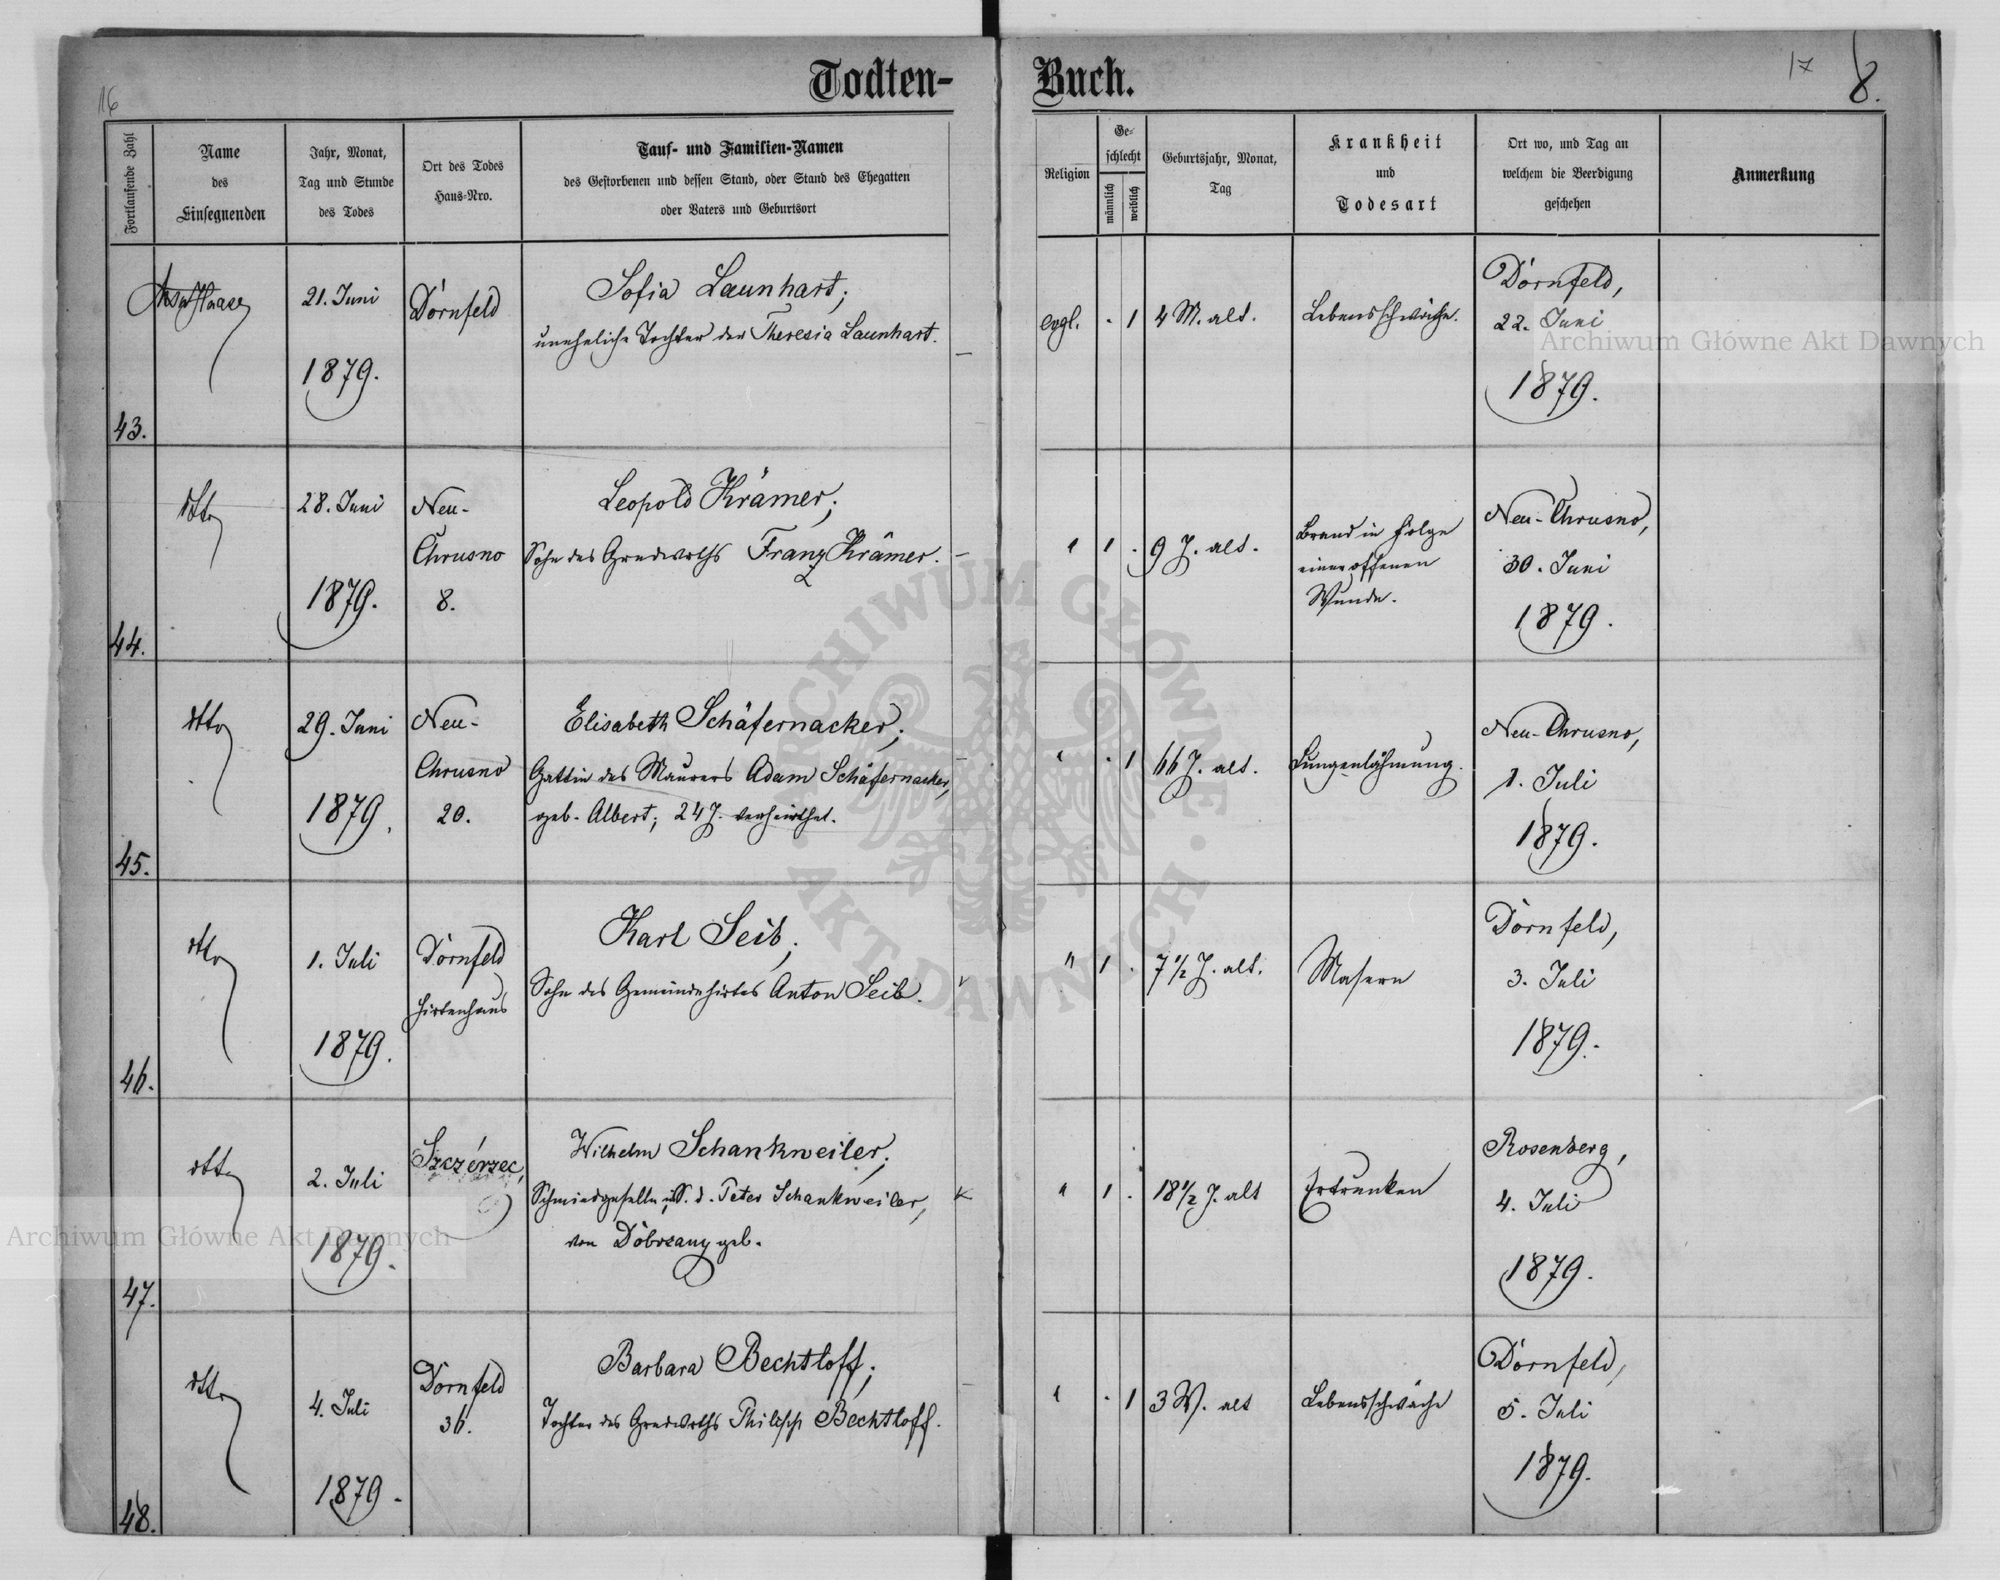 Todten-
Buch.
16
17
8.
Fortlaufende Zahl
Name
des
Einsegnenden
Jahr, Monat,
Tag und Stunde
des Todes
Ort des Todes
Haus-Nro.
Tauf- und Familien-Namen
des Gestorbenen und dessen Stand, oder Stand des Ehegatten
oder Vaters und Geburtsort
Religion
Ge-
schlecht
männlich
weiblich
Geburtsjahr, Monat,
Tag
Krankheit
und
Todesart
Ort wo, und Tag an
welchem die Beerdigung
geschehen
Anmerkung
43.
21. Juni
1879.
Dörnfeld
Sofia Launhart;
uneheliche Tochter der Theresia Launhart.
evgl.
- 1
4 M. alt.
Lebensschwäche.
Dörnfeld,
22. Juni
1879.
44.
dtto
28. Juni
1879.
Neu-
Chrusno
8.
Leopold Krämer;
Sohn des Grndwrths Franz Krämer.
"
1 -
9 J. alt.
Brand in Folge
einer offenen
Wunde.
Neu-Chrusno,
30. Juni
1879.
45.
dtto
29. Juni
1879.
Neu-
Chrusno
20.
Elisabeth Schäfernacker;
Gattin des Maurers Adam Schäfernacker,
geb. Albert; 24 J. verheirthet.
"
- 1
66 J. alt.
Lungenlähmung.
Neu-Chrusno,
1. Juli
1879.
46.
dtto
1. Juli
1879.
Dörnfeld
Hirtenhaus
Karl Seib;
Sohn des Gemeindehirtes Anton Seib.
"
1 -
7 1/2 J. alt.
Masern
Dörnfeld,
3. Juli
1879.
47.
dtto
2. Juli
1879.
Szczérzec,
Wilhelm Schankweiler;
Schmiedgeselle, S. d. Peter Schankweiler,
von Dobrzany geb.
"
1 -
18 1/2 J. alt
Ertrunken
Rosenberg,
4. Juli
1879.
48.
dtto
4. Juli
1879.
Dörnfeld
36.
Barbara Bechtloff;
Tochter des Grndwrths Philipp Bechtloff.
"
- 1
3 W. alt
Lebensschwäche
Dörnfeld,
5. Juli
1879.
Archiwum Główne Akt Dawnych
Archiwum Główne Akt Dawnych
ARCHIWUM GŁÓWNE • AKT DAWNYCH •